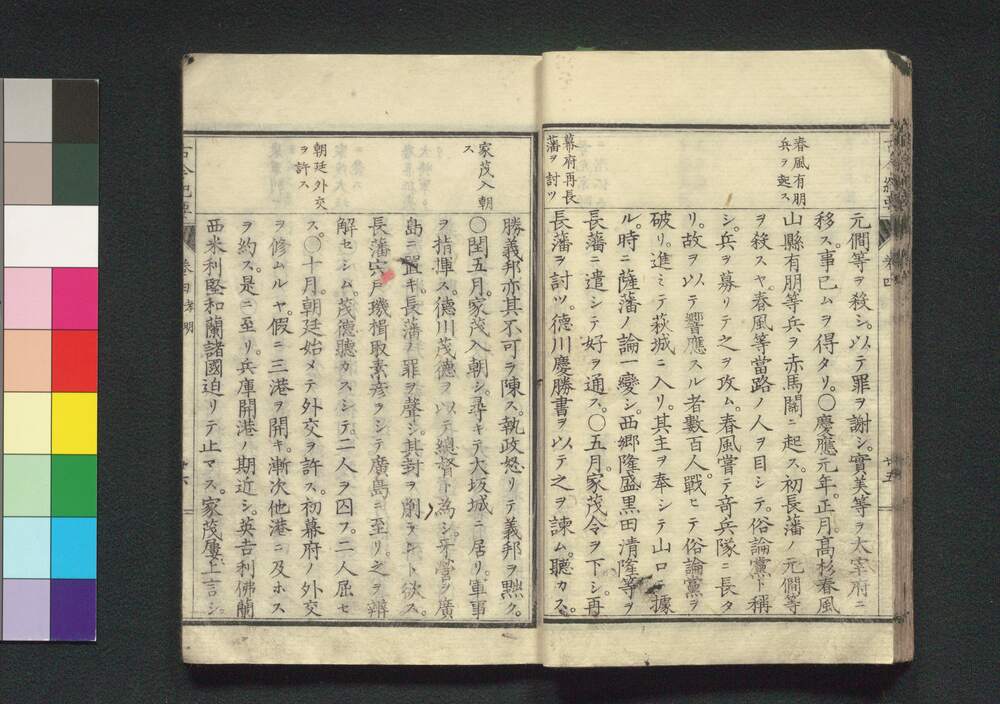 春風有朋
兵ヲ起ス
幕府再長
藩ヲ討ツ
元僴等ヲ殺シ。以テ罪ヲ謝シ。實美等ヲ太宰府ニ
移ス。事已ムヲ得タリ。〇慶應元年。正月。高杉春風
山縣有朋等兵ヲ赤馬關ニ起ス。初長藩ノ元僴等
ヲ殺スヤ。春風等當路ノ人ヲ目シテ。俗論黨ト稱
シ。兵ヲ募リテ之ヲ攻ム。春風嘗テ竒兵隊ニ長タ
リ。故ヲ以テ響應スル者數百人。戰ヒテ俗論黨ヲ
破リ。進ミテ萩城ニ入リ。其主ヲ奉シテ山口ニ據
ル。時ニ薩藩ノ論一變シ。西郷隆盛黒田清隆等ヲ
長藩ニ遣シテ好ヲ通ス。〇五月。家茂令ヲ下シ。再
長藩ヲ討ツ。徳川慶勝書ヲ以テ之ヲ諫ム。聽カス。
家茂入朝
ス
朝廷外交
ヲ許ス
勝義邦亦其不可ヲ陳ス。執政怒リテ義邦ヲ黜ク。
〇閏五月。家茂入朝シ。尋キテ大坂城ニ居リ。軍事
ヲ指揮ス。徳川茂徳ヲ以テ總督ト為シ。牙營ヲ廣
島ニ置キ。長藩ノ罪ヲ聲シ。其封ヲ削ラント欲ス。
長藩宍戸璣楫取素彦ヲシテ廣島ニ至リ。之ヲ辯
解セシム。茂徳聽カスシテ。二人ヲ囚フ。二人屈セ
ス。〇十月。朝廷始メテ外交ヲ許ス。初幕府ノ外交
ヲ修ムルヤ。假ニ三港ヲ開キ。漸次他港ニ及ホス
ヲ約ス。是ニ至リ。兵庫開港ノ期近シ。英吉利佛蘭
西米利堅和蘭諸國迫リテ止マス。家茂屢上言シ。